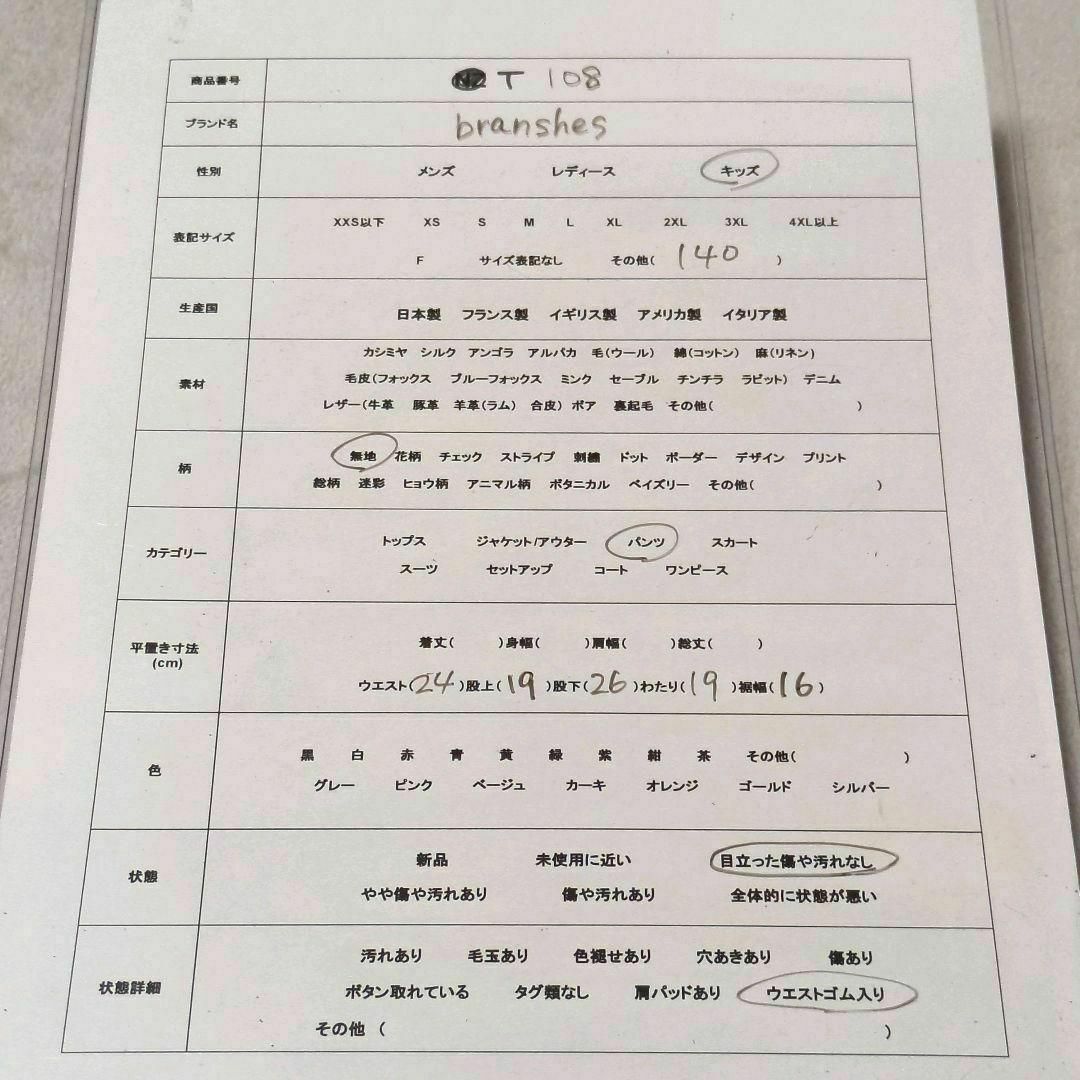 商品番号 T 108
ブランド名 branshes
性別 メンズ レディース キッズ
XXS以下 XS S M L XL 2XL 3XL 4XL以上
表記サイズ
F サイズ表記なし その他( 140 )
生産国 日本製 フランス製 イギリス製 アメリカ製 イタリア製
カシミヤ シルク アンゴラ アルパカ 毛(ウール) 綿(コットン) 麻(リネン)
素材 毛皮(フォックス ブルーフォックス ミンク セーブル チンチラ ラビット) デニム
レザー(牛革 豚革 羊革(ラム) 合皮) ボア 裏起毛 その他( )
柄 無地 花柄 チェック ストライプ 刺繍 ドット ボーダー デザイン プリント
総柄 迷彩 ヒョウ柄 アニマル柄 ボタニカル ペイズリー その他( )
カテゴリー トップス ジャケット/アウター パンツ スカート
スーツ セットアップ コート ワンピース
平置き寸法 着丈( )身幅( )肩幅( )総丈( )
(cm)
ウエスト(24)股上(19)股下(26)わたり(19)裾幅(16)
黒 白 赤 青 黄 緑 紫 紺 茶 その他( )
色
グレー ピンク ベージュ カーキ オレンジ ゴールド シルバー
状態 新品 未使用に近い 目立った傷や汚れなし
やや傷や汚れあり 傷や汚れあり 全体的に状態が悪い
汚れあり 毛玉あり 色褪せあり 穴あきあり 傷あり
状態詳細 ボタン取れている タグ類なし 肩パッドあり ウエストゴム入り
その他 ( )